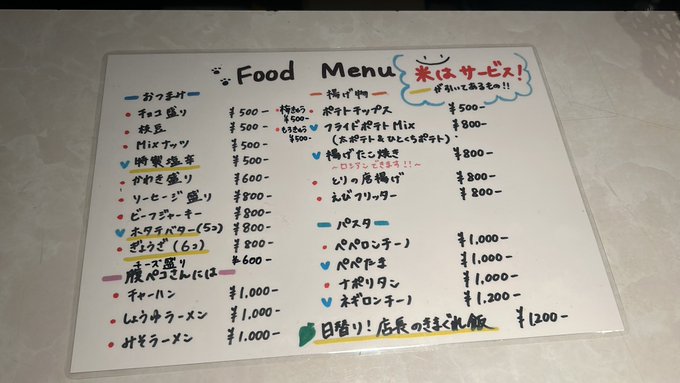 Food Menu
米はサービス!
が引いてあるもの!!
おつまみ
チョコ盛り ¥500-
枝豆 ¥500-
Mixナッツ ¥500-
特製塩辛 ¥500-
かわき盛り ¥600-
ソーセージ盛り ¥800-
ビーフジャーキー ¥800-
ホタテバター(5コ) ¥800-
ぎょうざ(6コ) ¥800-
チーズ盛り ¥600-
梅きゅう
¥500-
もろきゅう
¥500-
腹ペコさんには
チャーハン ¥1.000-
しょうゆラーメン ¥1.000-
みそラーメン ¥1.000-
揚げ物
ポテトチップス ¥500-
フライドポテトMix ¥800-
(太ポテト&ひとくちポテト)
揚げたこ焼き ¥800-
~ロシアンできます!!~
とりの唐揚げ ¥800-
えびフリッター ¥800-
パスタ
ペペロンチーノ ¥1,000-
ペペたま ¥1,000-
ナポリタン ¥1,000-
ネギロンチーノ ¥1,200-
日替り!店長のきまぐれ飯 ¥1200-